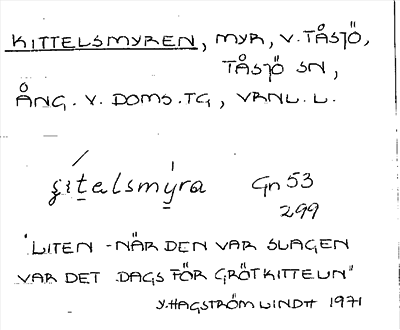 KITTELSMYREN, MYR, V. TÅSJÖ,
TÅSJÖ SN,
ÅNG. V. DOMS.TG, VRNL. L.
ʂítelsmýra Gn 53
299
"LITEN - NÄR DEN VAR SLAGEN
VAR DET DAGS FÖR GRÖTKITTELN"
Y. HAGSTRÖM LINDH 1971